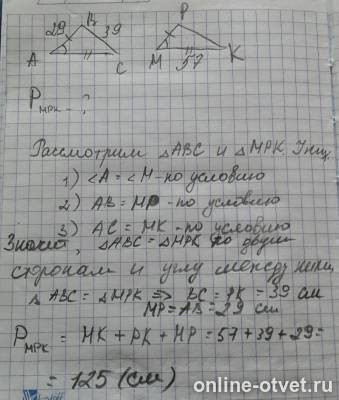 29 B 39 P
A C M 57 K
P MPK - ?
Рассмотрим △ABC и △MPK. У них
1) ∠A = ∠M - по условию
2) AB = MP - по условию
3) AC = MK - по условию
Значит, △ABC = △MPK по двум
сторонам и углу между ними
△ABC = △MPK => BC = PK = 39 см
MP = AB = 29 см
P MPK = MK + PK + MP = 57 + 39 + 29 =
= 125 (см)
online-otvet.ru